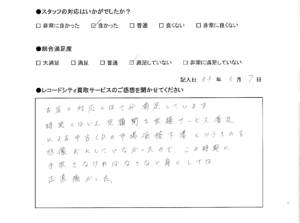 ●スタッフの対応はいかがでしたか?
□ 非常に良かった ☑ 良かった □ 普通 □ 良くない □ 非常に良くない
●総合満足度
□ 大満足 □ 満足 □ 普通 ☑ 満足していない □ 非常に満足していない
記入日: 年 月 7 日
●レコードシティ買取サービスのご感想を聞かせてください
お店の対応には十分満足しています
時流とはいえ定額聞き放題サービス普及
による中古CDの市場価格下落というものを
想像だにしていなかったので、この時期に
手放さなければならない身としては
正直痛かった。